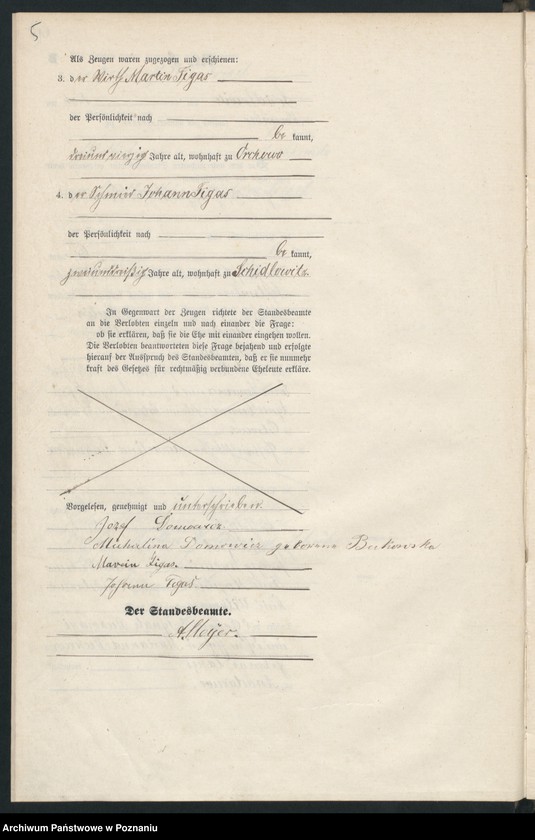 5
Als Zeugen waren zugezogen und erschienen:
3. der Wirth Martin Figas
der Persönlichkeit nach
be kannt,
dreiundvierzig Jahre alt, wohnhaft zu Orchowo
4. der Johann Figas
der Persönlichkeit nach
be kannt,
zweiunddreißig Jahre alt, wohnhaft zu Schidlowitz.
In Gegenwart der Zeugen richtete der Standesbeamte
an die Verlobten einzeln und nach einander die Frage:
ob sie erklären, daß sie die Ehe mit einander eingehen wollen.
Die Verlobten beantworteten diese Frage bejahend und erfolgte
hierauf der Ausspruch des Standesbeamten, daß er sie nunmehr
kraft des Gesetzes für rechtmäßig verbundene Eheleute erkläre.
Vorgelesen, genehmigt und unterschrieben:
Jozef
Michalina geborene Bukowska
Marcin Figas.
Johann Figas
Der Standesbeamte.
A. Meyer.
Archiwum Państwowe w Poznaniu